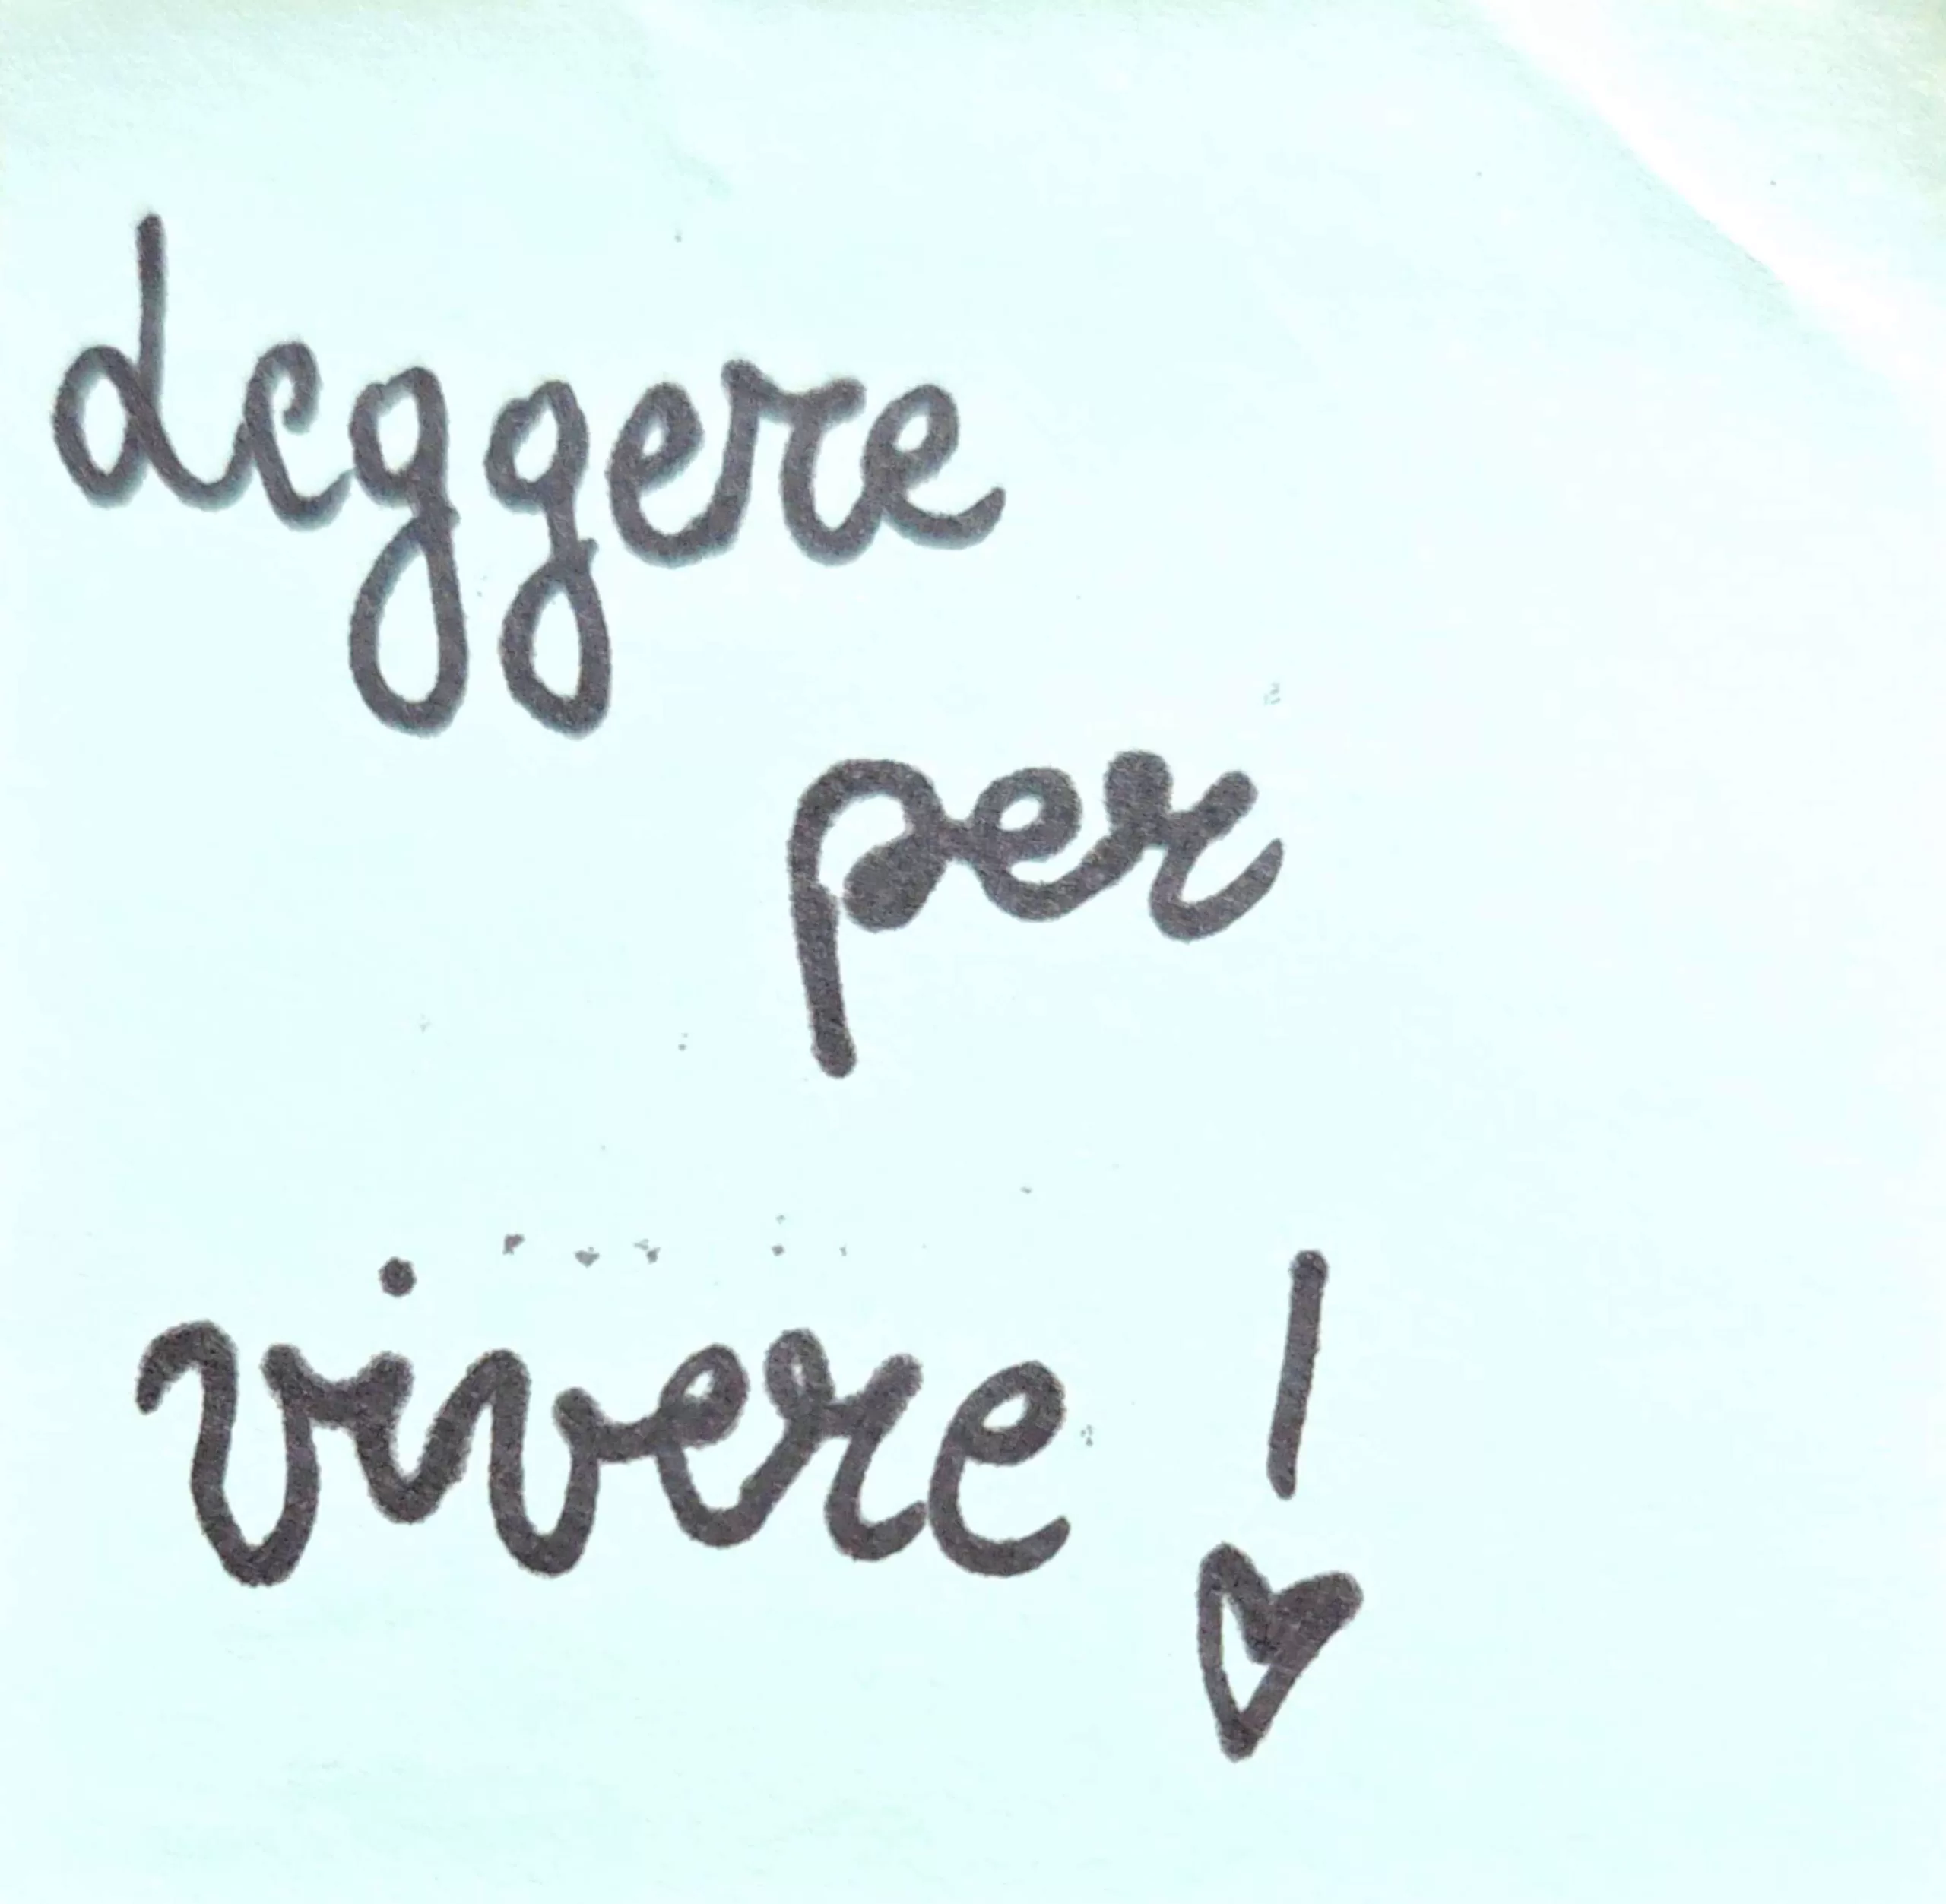 leggere
per
vivere !